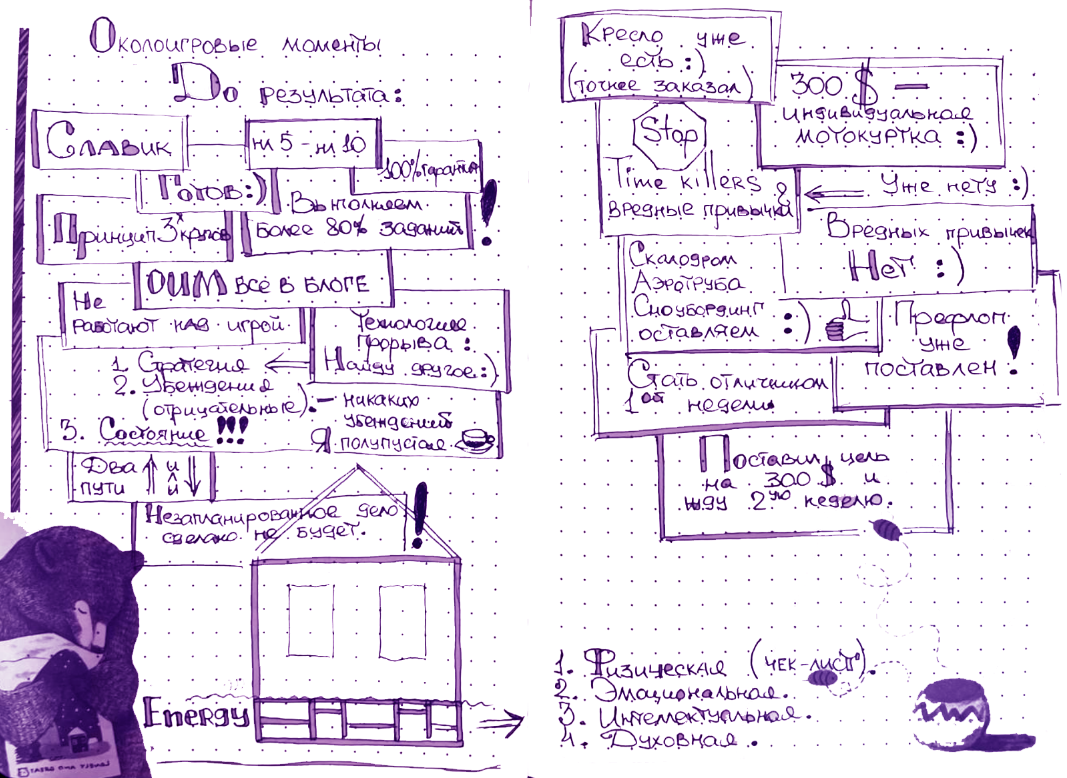 Околоигровые моменты
До результата:
Славик
нл 5 - нл 10
100% гарантия
Готов:)
Выполняем
более 80% заданий!
Принцип 3х кругов
ОШМ всё в блоге
Не
работают над игрой.
Технология
прорыва:
Найду другое:)
1. Стратегия
2. Убеждения
(отрицательные).
— никаких
убеждений
3. Состояние !!!
Я полупустая
Два
пути
и
й
Незапланированное дело
сделано не будет.
!
Energy
Кресло уже
есть :)
(точнее заказал)
300 $ —
индивидуальная
мотокуртка :)
Stop
Time killers &
вредные привычки
Уже нету :)
Вредных привычек
Нет :)
Скалодром
Аэротруба
Сноубординг
оставляем :)
Префлоп
уже
поставлен !
Стать отличником
1ой недели
Поставил цель
на 300 $ и
жду 2ую неделю.
1. Физическая (чек-лист).
2. Эмациональная.
3. Интеллектуальная.
4. Духовная.